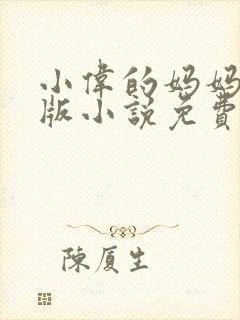 小偉的妈妈
版小説免費
陳厦生